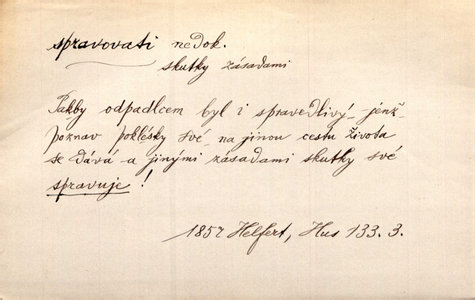 spravovati nedok.
skutky zásadami
Pakby odpadlcem byl i spravedlivý jenž
poznav poklésky své na jinou cestu života
se dává a jinými zásadami skutky své
spravuje!
1857 Helfert, Hus 133. 3.